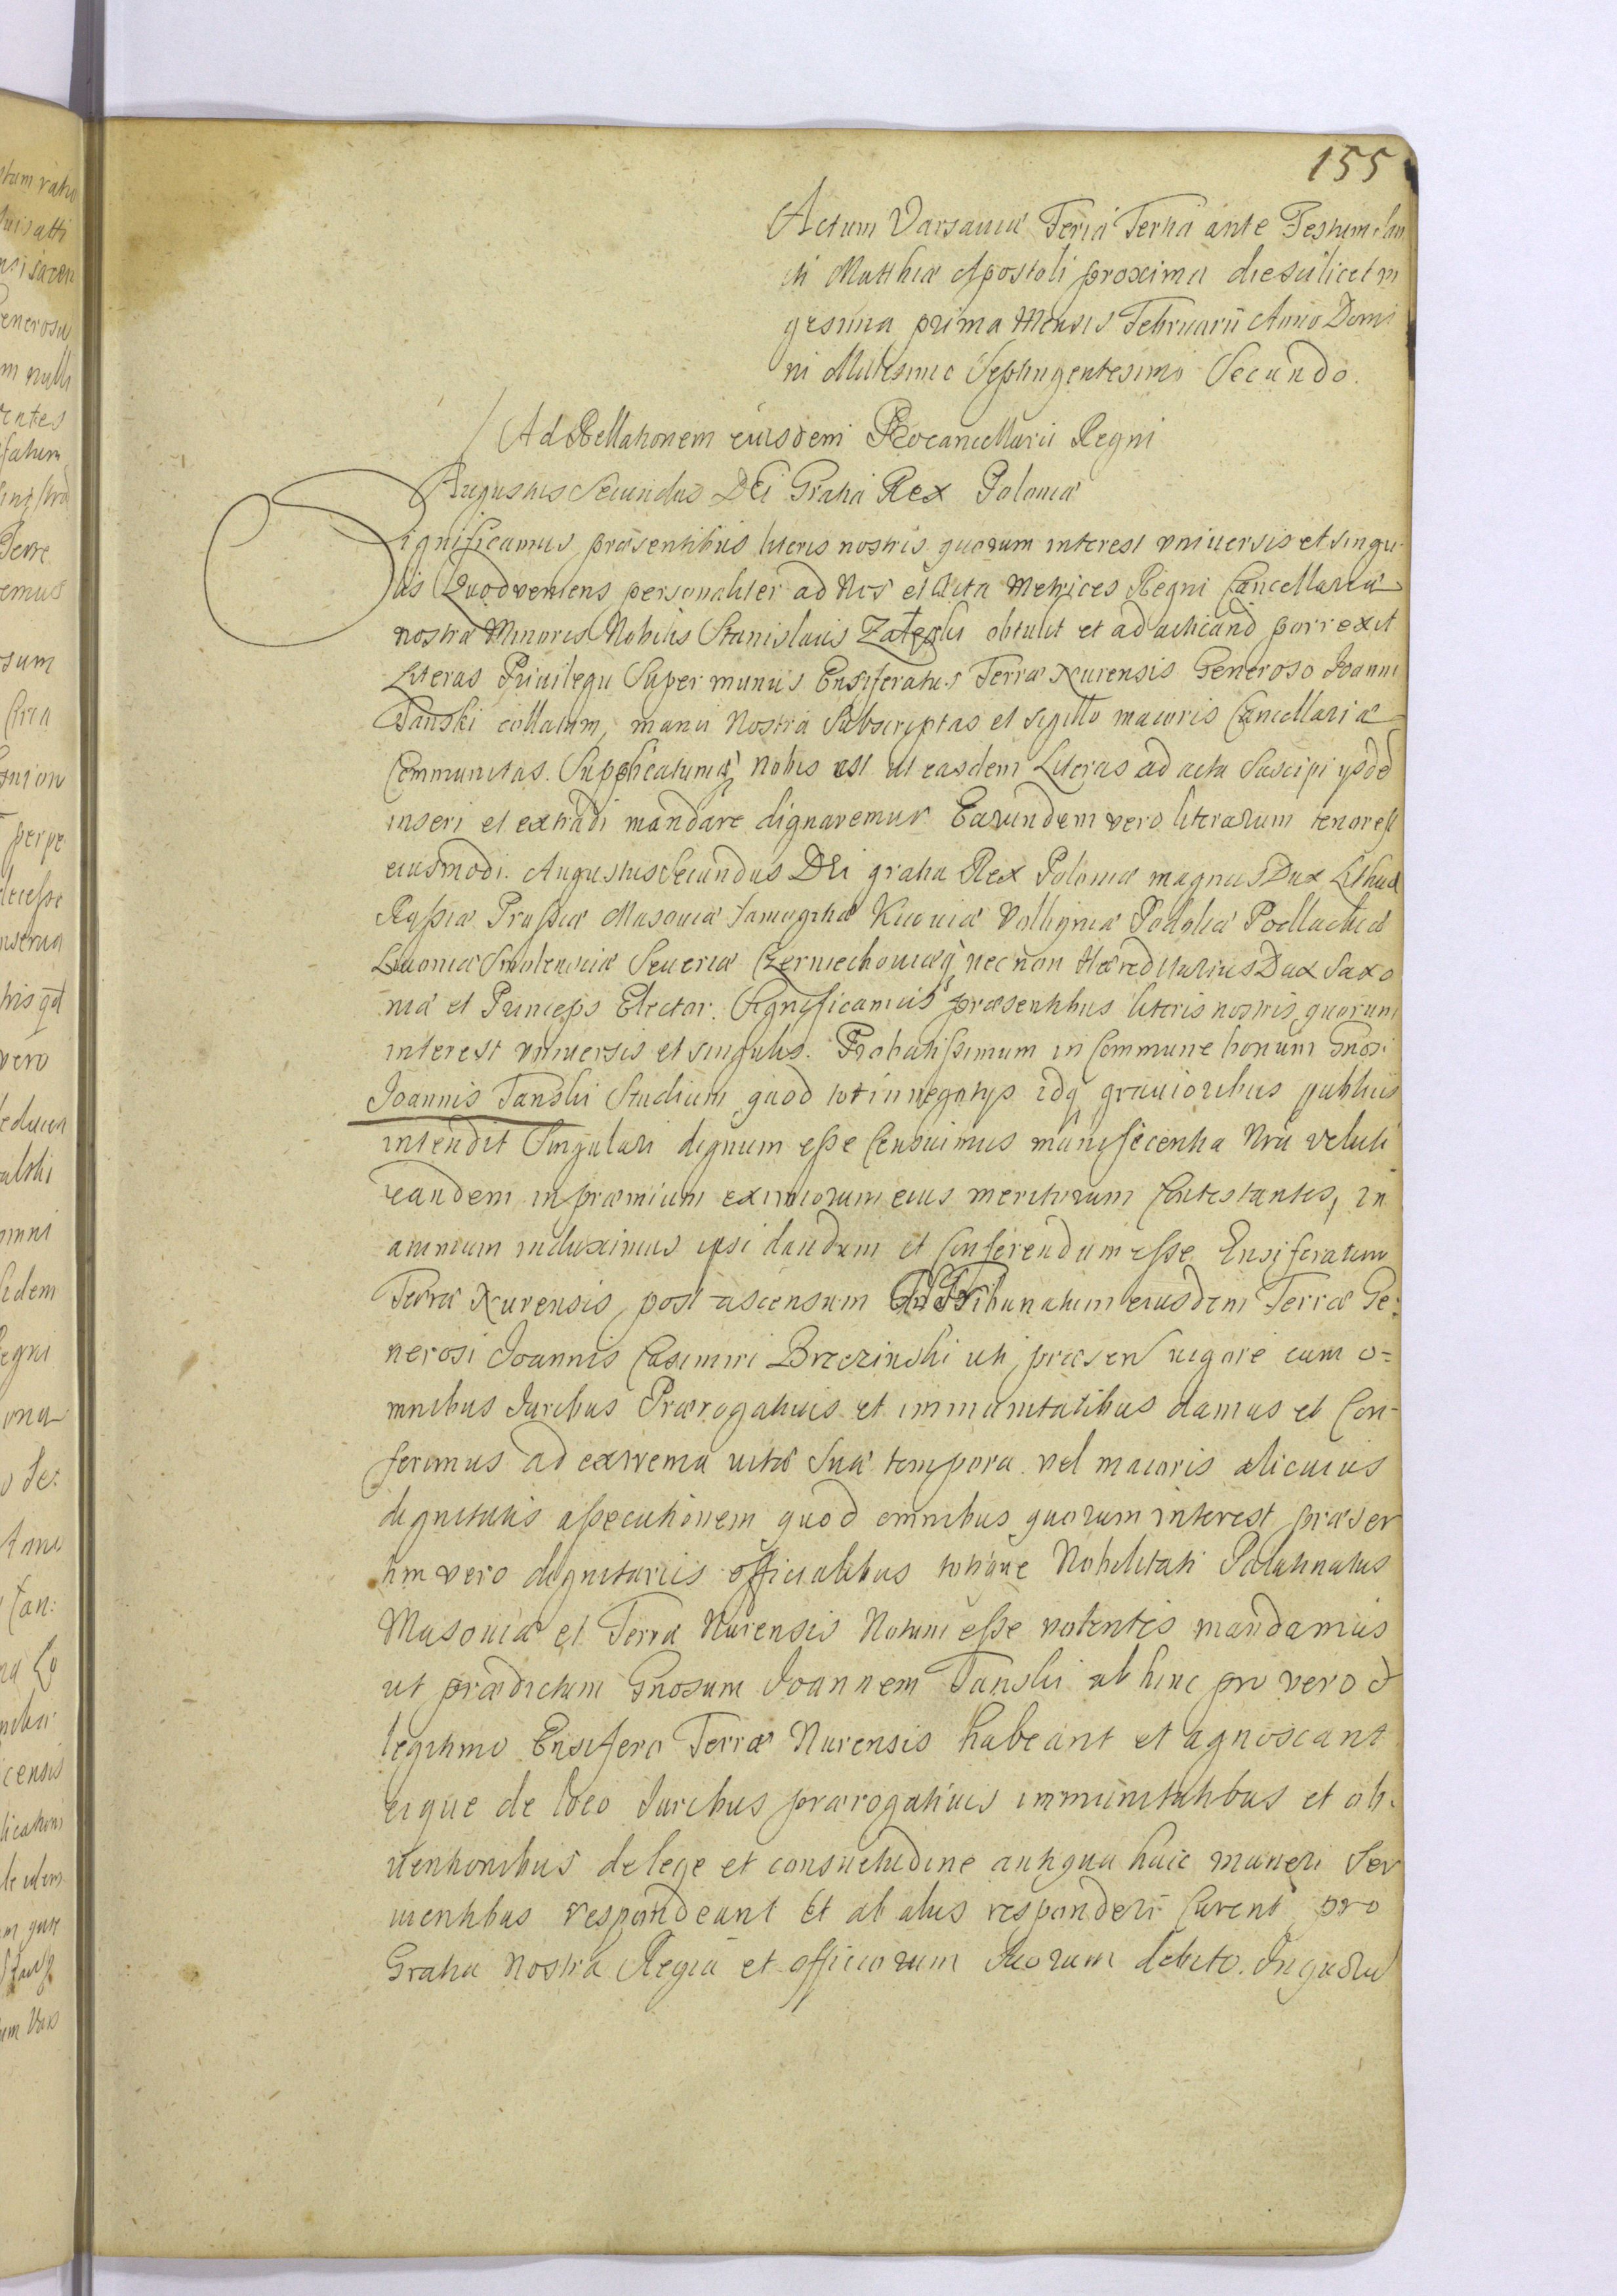 155
Actum Varsaviæ Feria Tertia ante Festum San
cti Matthiæ Apostoli proxima die scilicet vi
gesima prima Mensis Februarii Anno Domi
ni Millesimo Septingentesimo Secundo.
Ad Rellationem eiusdem Procancellarii Regni
Augustus Secundus DEi Gratia Rex Poloniæ
Significamus præsentibus literis nostris quorum interest vniuersis et singu
lis Quod veniens personaliter ad Nos et Acta Metrices Regni Cancellariæ
nostræ Minoris Nobilis Stanislaus obtulit et ad acticand porrexit
Literas Priuilegii Super munus Ensiferatus Terræ Nurensis Generoso Joanni
Tanski collatum, manu Nostra Subscriptas et sigillo maioris Cancellariæ
Communitas. Supplicatumq nobis est ut easdem Literas ad acta Suscipi ysdē
inseri et extradi mandare dignaremur Earundem vero literarum tenor est
eiusmodi. Augustus Secundus DEi gratia Rex Poloniæ magnus Dux Lithuæ
Russiæ Prussiæ Masouiæ Samogitiæ Kiiouiæ Volhyniæ Podoliæ Podlachiæ
Liuoniæ Smolensciæ Seueriæ Czerniechouiæq nec non Hæreditarius Dux Saxo
niæ et Princeps Elector. Significamus præsentibus literis nostris quorum
interest vniuersis et singulis. Probatissimum in Commune bonum Gnosi
Joannis Tanski Studium quod tot in negotys idq grauioribus publicis
intendit Singulari dignum esse Censuimus munificentia Nrā veluti
eandem in præmium eximiorum eius meritorum Contestantes, in
animum induximus ipsi dandum et Conferendum esse Ensiferatum
Terræ Nurensis post ascensum Ad Tribunatum eiusdem Terræ Ge:
nerosi Joannis Casimiri Brzezinski uti præsen uigore cum o=
mnibus Juribus Prærogatiuis et immunitatibus damus et Con-
ferimus ad extrema uitæ Suæ tempora vel maioris alicuius
dignitatis assecutionem quod omnibus quorum interest præser
tim vero dignitariis officialibus totique Nobilitati Palatinatus
Masouiæ et Terræ Nurensis Notum esse volentes mandamus
ut prædictum Gnosum Joannem Tanski ab hinc pro vero &
legitimo Ensifero Terræ Nurensis habeant et agnoscant
eique de loco Juribus prærogatiuis immunitatibus et ob-
uentionibus de lege et consuetudine antiqua huic muneri Ser
uientibus respondeant Et ab alus responderi Curent pro
Gratia Nostra Regia et officiorum Suorum debito. In quoru